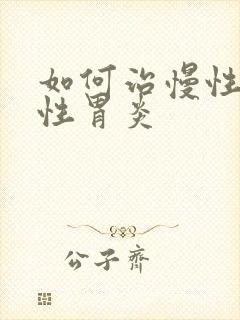 如何治慢性
性胃炎
公子齐